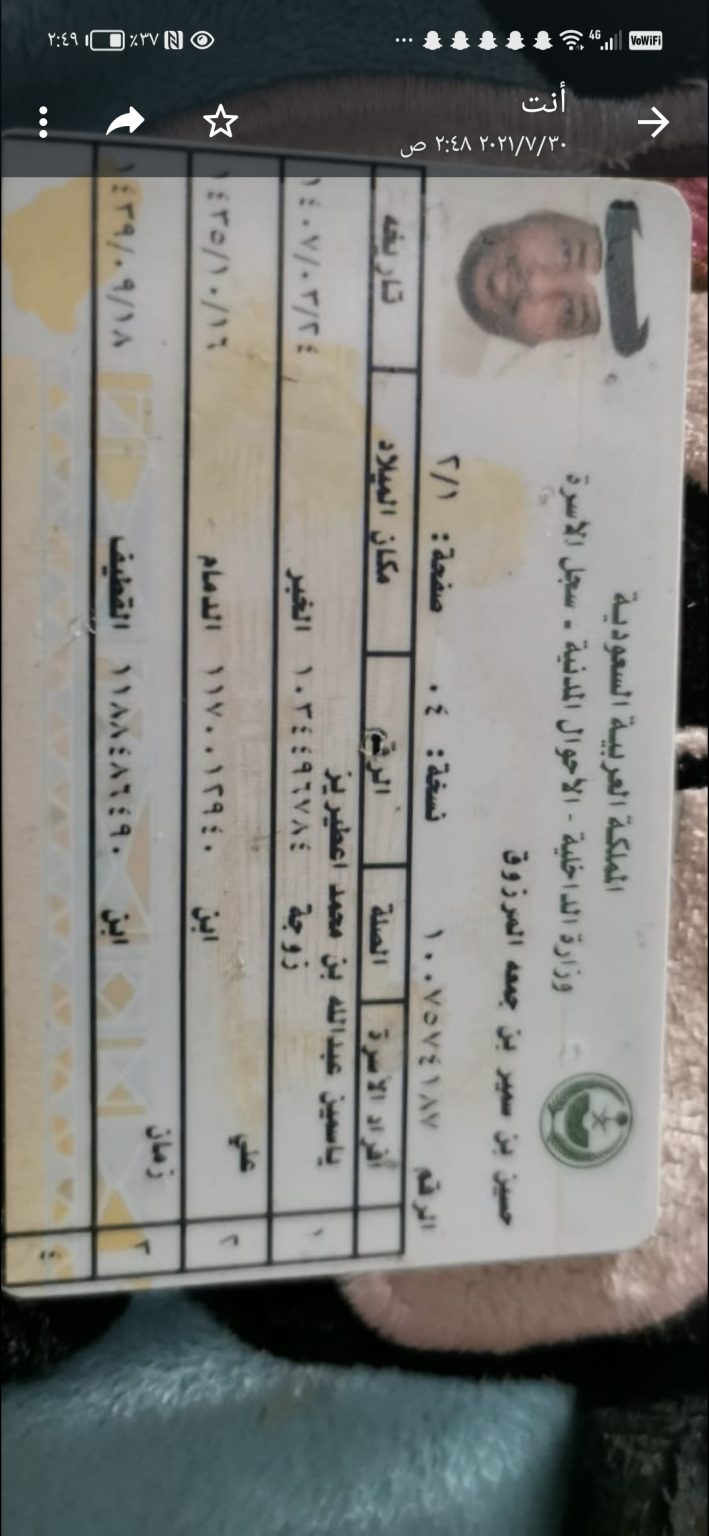 ٢:٤٩ ٪٣٧ ... 4G VoWiFi
أنت
٢٠٢١/٧/٣٠ ٢:٤٨ ص
المملكة العربية السعودية
وزارة الداخلية - الأحوال المدنية - سجل الأسرة
حسين بن سمير بن جمعه المرزوق
الرقم ١٠٠٧٥٧٤١٨٧ نسخة: ٠٤ صفحة: ٢/١
أفراد الأسرة الصلة الرقم مكان الميلاد تاريخه
١ ياسمين عبدالله بن محمد زوجة ١٠٣٤٤٩٦٧٨٤ الخبر ١٤٠٧/٠٣/٢٤
٢ علي ابن ١١٧٠٠١٢٩٤٠ الدمام ١٤٣٥/١٠/١٦
٣ زمان ابن ١١٨٨٤٨٦٤٩٠ القطيف ١٤٣٩/٠٩/١٨
٤